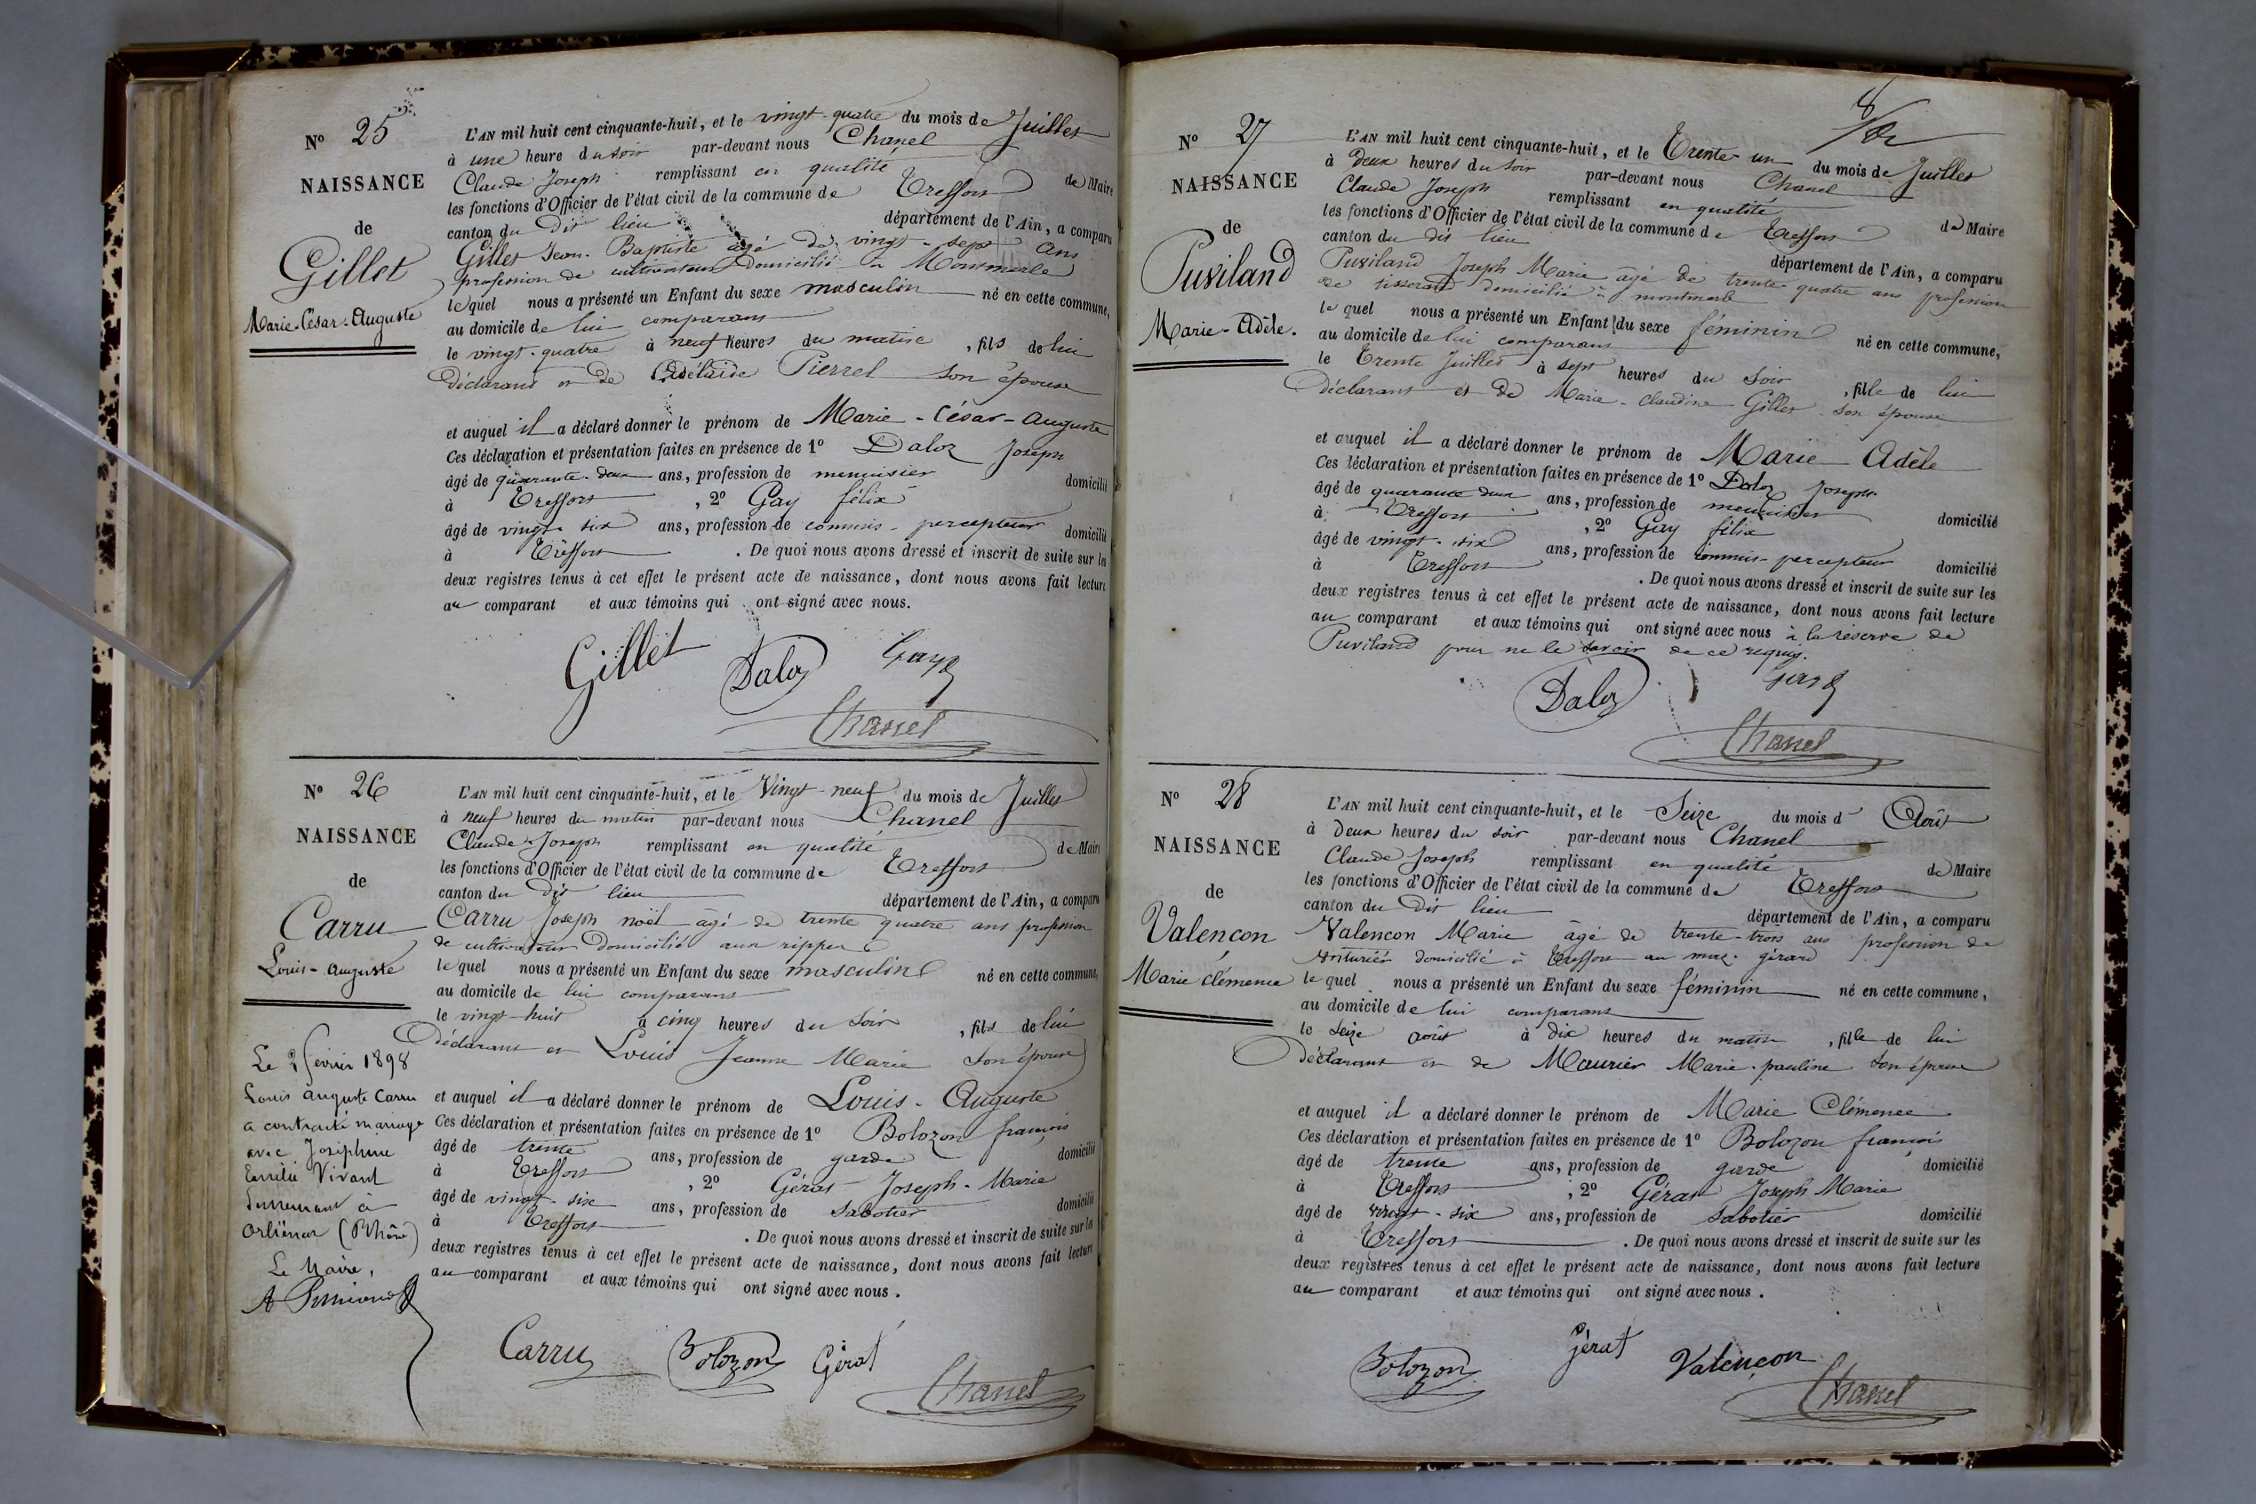 N° 25
NAISSANCE
de
Gillet
Marie-César-Auguste
L'AN mil huit cent cinquante-huit, et le vingt-quatre du mois de Juillet
à une heure du soir par-devant nous Chanel
Claude Joseph remplissant en qualité de Maire
les fonctions d'Officier de l'état civil de la commune de Treffort
canton du dit lieu département de l'Ain, a comparu
Gillet Jean-Baptiste âgé de vingt-sept ans
profession de cultivateur domicilié à Montmerle
lequel nous a présenté un Enfant du sexe masculin né en cette commune,
au domicile de lui comparant
le vingt-quatre à neuf heures du matin, fils de lui
déclarant et de Adélaïde Pierrel son épouse
et auquel il a déclaré donner le prénom de Marie-César-Auguste
Ces déclaration et présentation faites en présence de 1° Daloz Joseph
âgé de quarante-deux ans, profession de menuisier domicilié
à Treffort, 2° Gay félix
âgé de vingt-six ans, profession de commis-percepteur domicilié
à Treffort. De quoi nous avons dressé et inscrit de suite sur les
deux registres tenus à cet effet le présent acte de naissance, dont nous avons fait lecture
au comparant et aux témoins qui ont signé avec nous.
Gillet Daloz Gay
Chanel
N° 26
NAISSANCE
de
Carru
Louis-Auguste
Le 3 février 1898
Louis Auguste Carru
a contracté mariage
avec Joséphine
Emélie Vivant
Surremant à
Orliénas (Rhône)
Le Maire,
L'AN mil huit cent cinquante-huit, et le Vingt-neuf du mois de Juillet
à neuf heures du matin par-devant nous Chanel
Claude-Joseph remplissant en qualité de Maire
les fonctions d'Officier de l'état civil de la commune de Treffort
canton du dit lieu département de l'Ain, a comparu
Carru Joseph noël âgé de trente quatre ans profession
de cultivateur domicilié aux rippes
lequel nous a présenté un Enfant du sexe masculin né en cette commune,
au domicile de lui comparant
le vingt-huit à cinq heures du soir, fils de lui
déclarant et Louis Jeanne Marie son épouse
et auquel il a déclaré donner le prénom de Louis-Auguste
Ces déclaration et présentation faites en présence de 1° Bolozon françois
âgé de trente ans, profession de garde domicilié
à Treffort, 2° Gérat Joseph-Marie
âgé de vingt-six ans, profession de sabotier domicilié
à Treffort. De quoi nous avons dressé et inscrit de suite sur les
deux registres tenus à cet effet le présent acte de naissance, dont nous avons fait lecture
au comparant et aux témoins qui ont signé avec nous.
Carru Bolozon Gérat
Chanel
8
N° 27
NAISSANCE
de
Puviland
Marie-Adèle.
L'AN mil huit cent cinquante-huit, et le Trente-un du mois de Juillet
à deux heures du soir par-devant nous Chanel
Claude Joseph remplissant en qualité de Maire
les fonctions d'Officier de l'état civil de la commune de Treffort
canton du dit lieu département de l'Ain, a comparu
Puviland Joseph Marie âgé de trente-quatre ans profession
de tisserand domicilié à montmerle
lequel nous a présenté un Enfant du sexe féminin né en cette commune,
au domicile de lui comparant
le Trente Juillet à sept heures du soir, fille de lui
déclarant et de Marie-Claudine Gillet son épouse
et auquel il a déclaré donner le prénom de Marie Adèle
Ces déclaration et présentation faites en présence de 1° Daloz Joseph
âgé de quarante deux ans, profession de menuisier domicilié
à Treffort, 2° Gay félix
âgé de vingt-six ans, profession de commis-percepteur domicilié
à Treffort. De quoi nous avons dressé et inscrit de suite sur les
deux registres tenus à cet effet le présent acte de naissance, dont nous avons fait lecture
au comparant et aux témoins qui ont signé avec nous à la réserve de
Puviland pour ne le savoir de ce requis.
Daloz Gay
Chanel
N° 28
NAISSANCE
de
Valencon
Marie Clémence
L'AN mil huit cent cinquante-huit, et le Seize du mois d'Août
à deux heures du soir par-devant nous Chanel
Claude Joseph remplissant en qualité de Maire
les fonctions d'Officier de l'état civil de la commune de Treffort
canton du dit lieu département de l'Ain, a comparu
Valencon Marie âgé de trente-trois ans profession de
voiturier domicilié à Treffort au gérard
lequel nous a présenté un Enfant du sexe féminin né en cette commune,
au domicile de lui comparant
le Seize août à dix heures du matin, fille de lui
déclarant et de Maurier Marie-pauline son épouse
et auquel il a déclaré donner le prénom de Marie Clémence
Ces déclaration et présentation faites en présence de 1° Bolozon françois
âgé de trente ans, profession de garde domicilié
à Treffort, 2° Gérat Joseph Marie
âgé de vingt-six ans, profession de sabotier domicilié
à Treffort. De quoi nous avons dressé et inscrit de suite sur les
deux registres tenus à cet effet le présent acte de naissance, dont nous avons fait lecture
au comparant et aux témoins qui ont signé avec nous.
Bolozon Gérat Valençon
Chanel